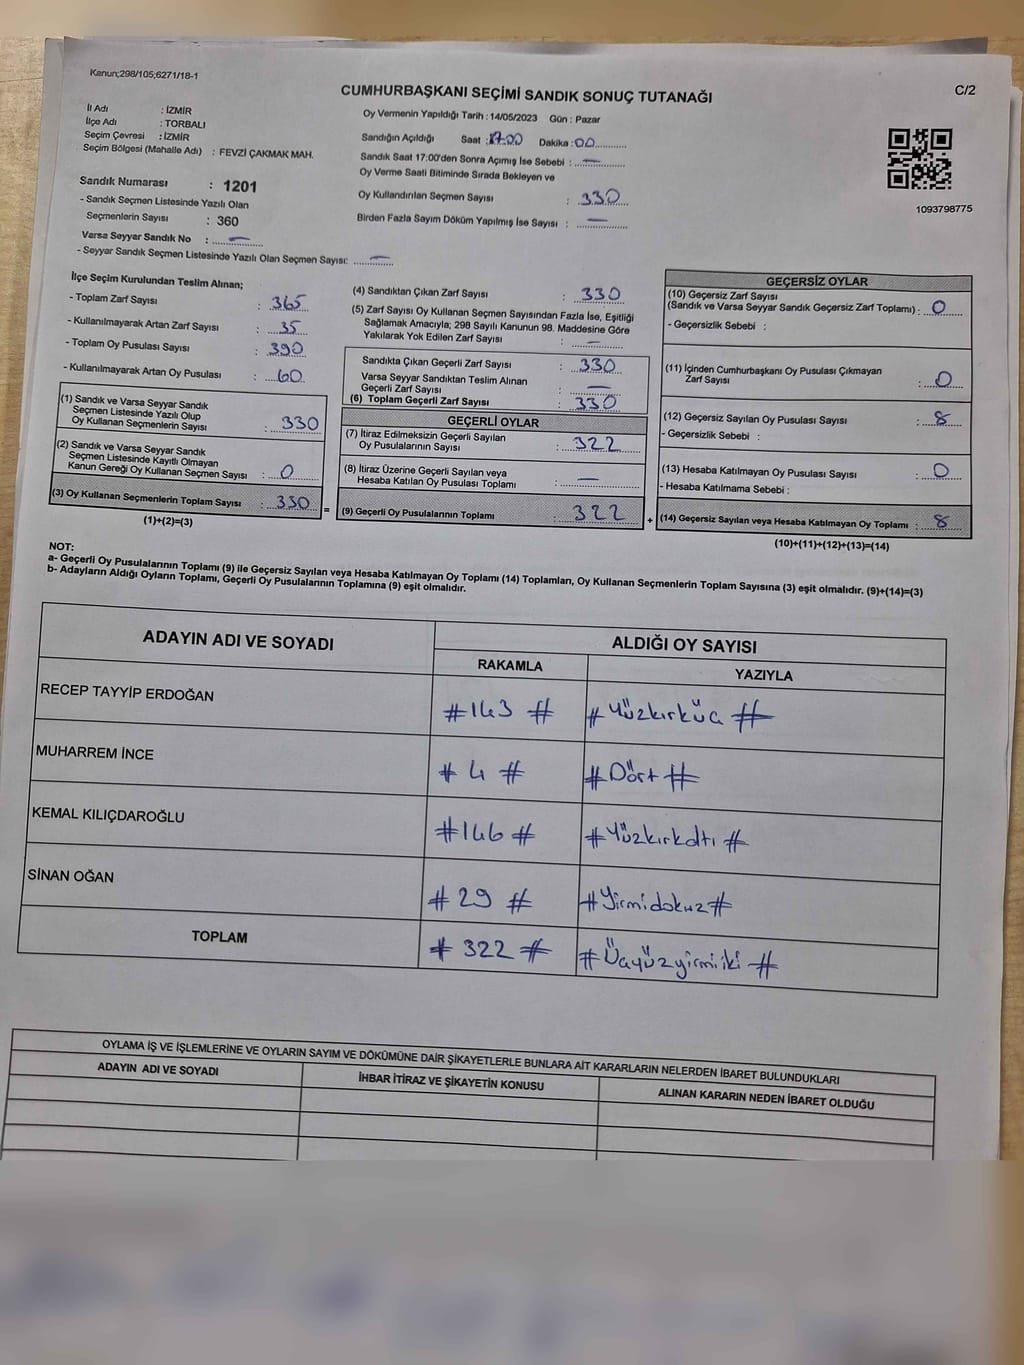 Kanun;298/105;6271/18-1
C/2
CUMHURBAŞKANI SEÇİMİ SANDIK SONUÇ TUTANAĞI
İl Adı : İZMİR
İlçe Adı : TORBALI
Seçim Çevresi : İZMİR
Seçim Bölgesi (Mahalle Adı) : FEVZİ ÇAKMAK MAH.
Oy Vermenin Yapıldığı Tarih : 14/05/2023 Gün : Pazar
Sandığın Açıldığı Saat : 17.00 Dakika : 00
Sandık Saat 17:00'den Sonra Açımış İse Sebebi : —
Oy Verme Saati Bitiminde Sırada Bekleyen ve
Oy Kullandırılan Seçmen Sayısı : 330
Birden Fazla Sayım Döküm Yapılmış İse Sayısı : —
1093798775
Sandık Numarası : 1201
- Sandık Seçmen Listesinde Yazılı Olan
Seçmenlerin Sayısı : 360
Varsa Seyyar Sandık No : —
- Seyyar Sandık Seçmen Listesinde Yazılı Olan Seçmen Sayısı: —
İlçe Seçim Kurulundan Teslim Alınan;
- Toplam Zarf Sayısı : 365
- Kullanılmayarak Artan Zarf Sayısı : 35
- Toplam Oy Pusulası Sayısı : 390
- Kullanılmayarak Artan Oy Pusulası : 60
(1) Sandık ve Varsa Seyyar Sandık
Seçmen Listesinde Yazılı Olup
Oy Kullanan Seçmenlerin Sayısı : 330
(2) Sandık ve Varsa Seyyar Sandık
Seçmen Listesinde Kayıtlı Olmayan
Kanun Gereği Oy Kullanan Seçmen Sayısı : 0
(3) Oy Kullanan Seçmenlerin Toplam Sayısı : 330 =
(1)+(2)=(3)
(4) Sandıktan Çıkan Zarf Sayısı : 330
(5) Zarf Sayısı Oy Kullanan Seçmen Sayısından Fazla İse, Eşitliği
Sağlamak Amacıyla; 298 Sayılı Kanunun 98. Maddesine Göre
Yakılarak Yok Edilen Zarf Sayısı : —
Sandıkta Çıkan Geçerli Zarf Sayısı : 330
Varsa Seyyar Sandıktan Teslim Alınan
Geçerli Zarf Sayısı : —
(6) Toplam Geçerli Zarf Sayısı : 330
GEÇERLİ OYLAR
(7) İtiraz Edilmeksizin Geçerli Sayılan
Oy Pusulalarının Sayısı : 322
(8) İtiraz Üzerine Geçerli Sayılan veya
Hesaba Katılan Oy Pusulası Toplamı : —
(9) Geçerli Oy Pusulalarının Toplamı : 322 +
GEÇERSİZ OYLAR
(10) Geçersiz Zarf Sayısı
(Sandık ve Varsa Seyyar Sandık Geçersiz Zarf Toplamı) : 0
- Geçersizlik Sebebi :
(11) İçinden Cumhurbaşkanı Oy Pusulası Çıkmayan
Zarf Sayısı : 0
(12) Geçersiz Sayılan Oy Pusulası Sayısı : 8
- Geçersizlik Sebebi :
(13) Hesaba Katılmayan Oy Pusulası Sayısı : 0
- Hesaba Katılmama Sebebi :
(14) Geçersiz Sayılan veya Hesaba Katılmayan Oy Toplamı : 8
(10)+(11)+(12)+(13)=(14)
NOT:
a- Geçerli Oy Pusulalarının Toplamı (9) ile Geçersiz Sayılan veya Hesaba Katılmayan Oy Toplamı (14) Toplamları, Oy Kullanan Seçmenlerin Toplam Sayısına (3) eşit olmalıdır. (9)+(14)=(3)
b- Adayların Aldığı Oyların Toplamı, Geçerli Oy Pusulalarının Toplamına (9) eşit olmalıdır.
ADAYIN ADI VE SOYADI ALDIĞI OY SAYISI
RAKAMLA YAZIYLA
RECEP TAYYİP ERDOĞAN #143# #Yüzkırküç#
MUHARREM İNCE #4# #Dört#
KEMAL KILIÇDAROĞLU #146# #Yüzkırkaltı#
SİNAN OĞAN #29# #Yirmidokuz#
TOPLAM #322# #Üçyüzyirmiiki#
OYLAMA İŞ VE İŞLEMLERİNE VE OYLARIN SAYIM VE DÖKÜMÜNE DAİR ŞİKAYETLERLE BUNLARA AİT KARARLARIN NELERDEN İBARET BULUNDUKLARI
ADAYIN ADI VE SOYADI İHBAR İTİRAZ VE ŞİKAYETİN KONUSU ALINAN KARARIN NEDEN İBARET OLDUĞU